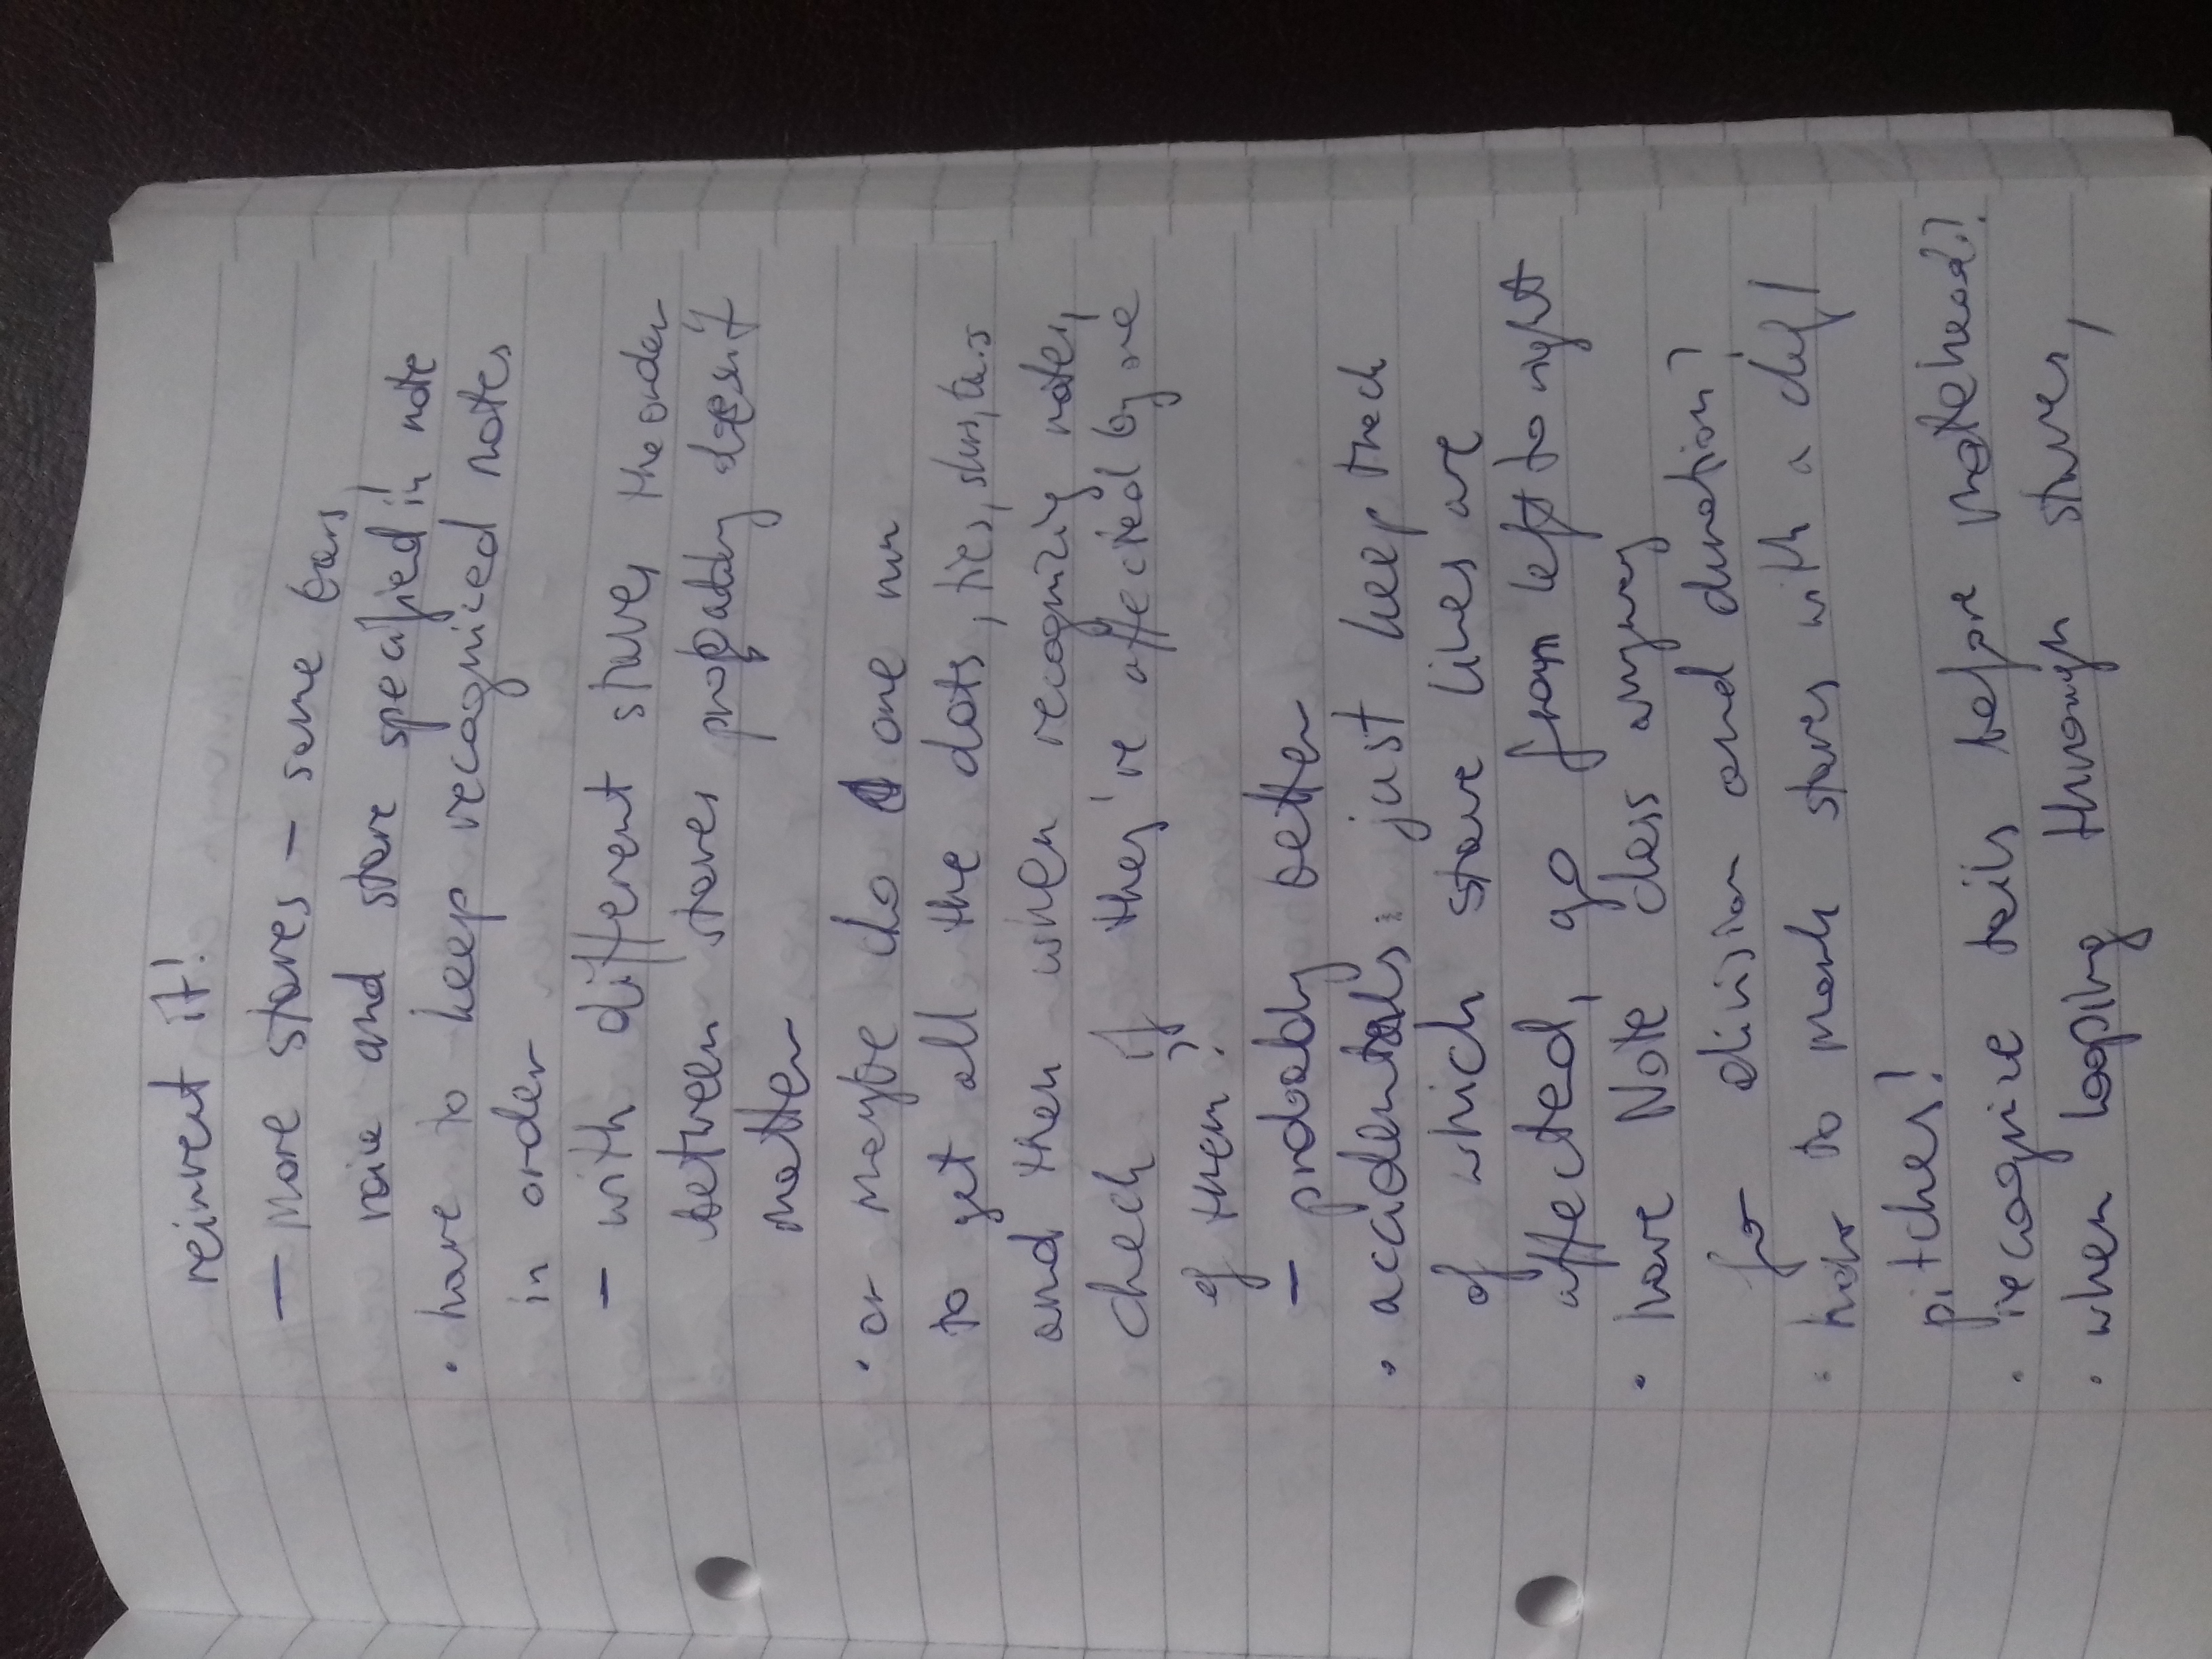 reinvent it!
- More staves - same bars,
voice and stave specified in note
• have to keep recognized notes
in order
- with different staves the order
between staves probably doesn't
matter
• or maybe do one run
to get all the dots, ties, slurs, bars
and then when recognizing notes,
check if they're affected by one
of them?
- probably better
• accidentals: just keep track
of which stave lines are
affected, go from left to right
• have Note class anyway
for division and duration?
• how to mark staves with a clef/
pitches?
• recognize tails before notehead??
• when looping through staves,